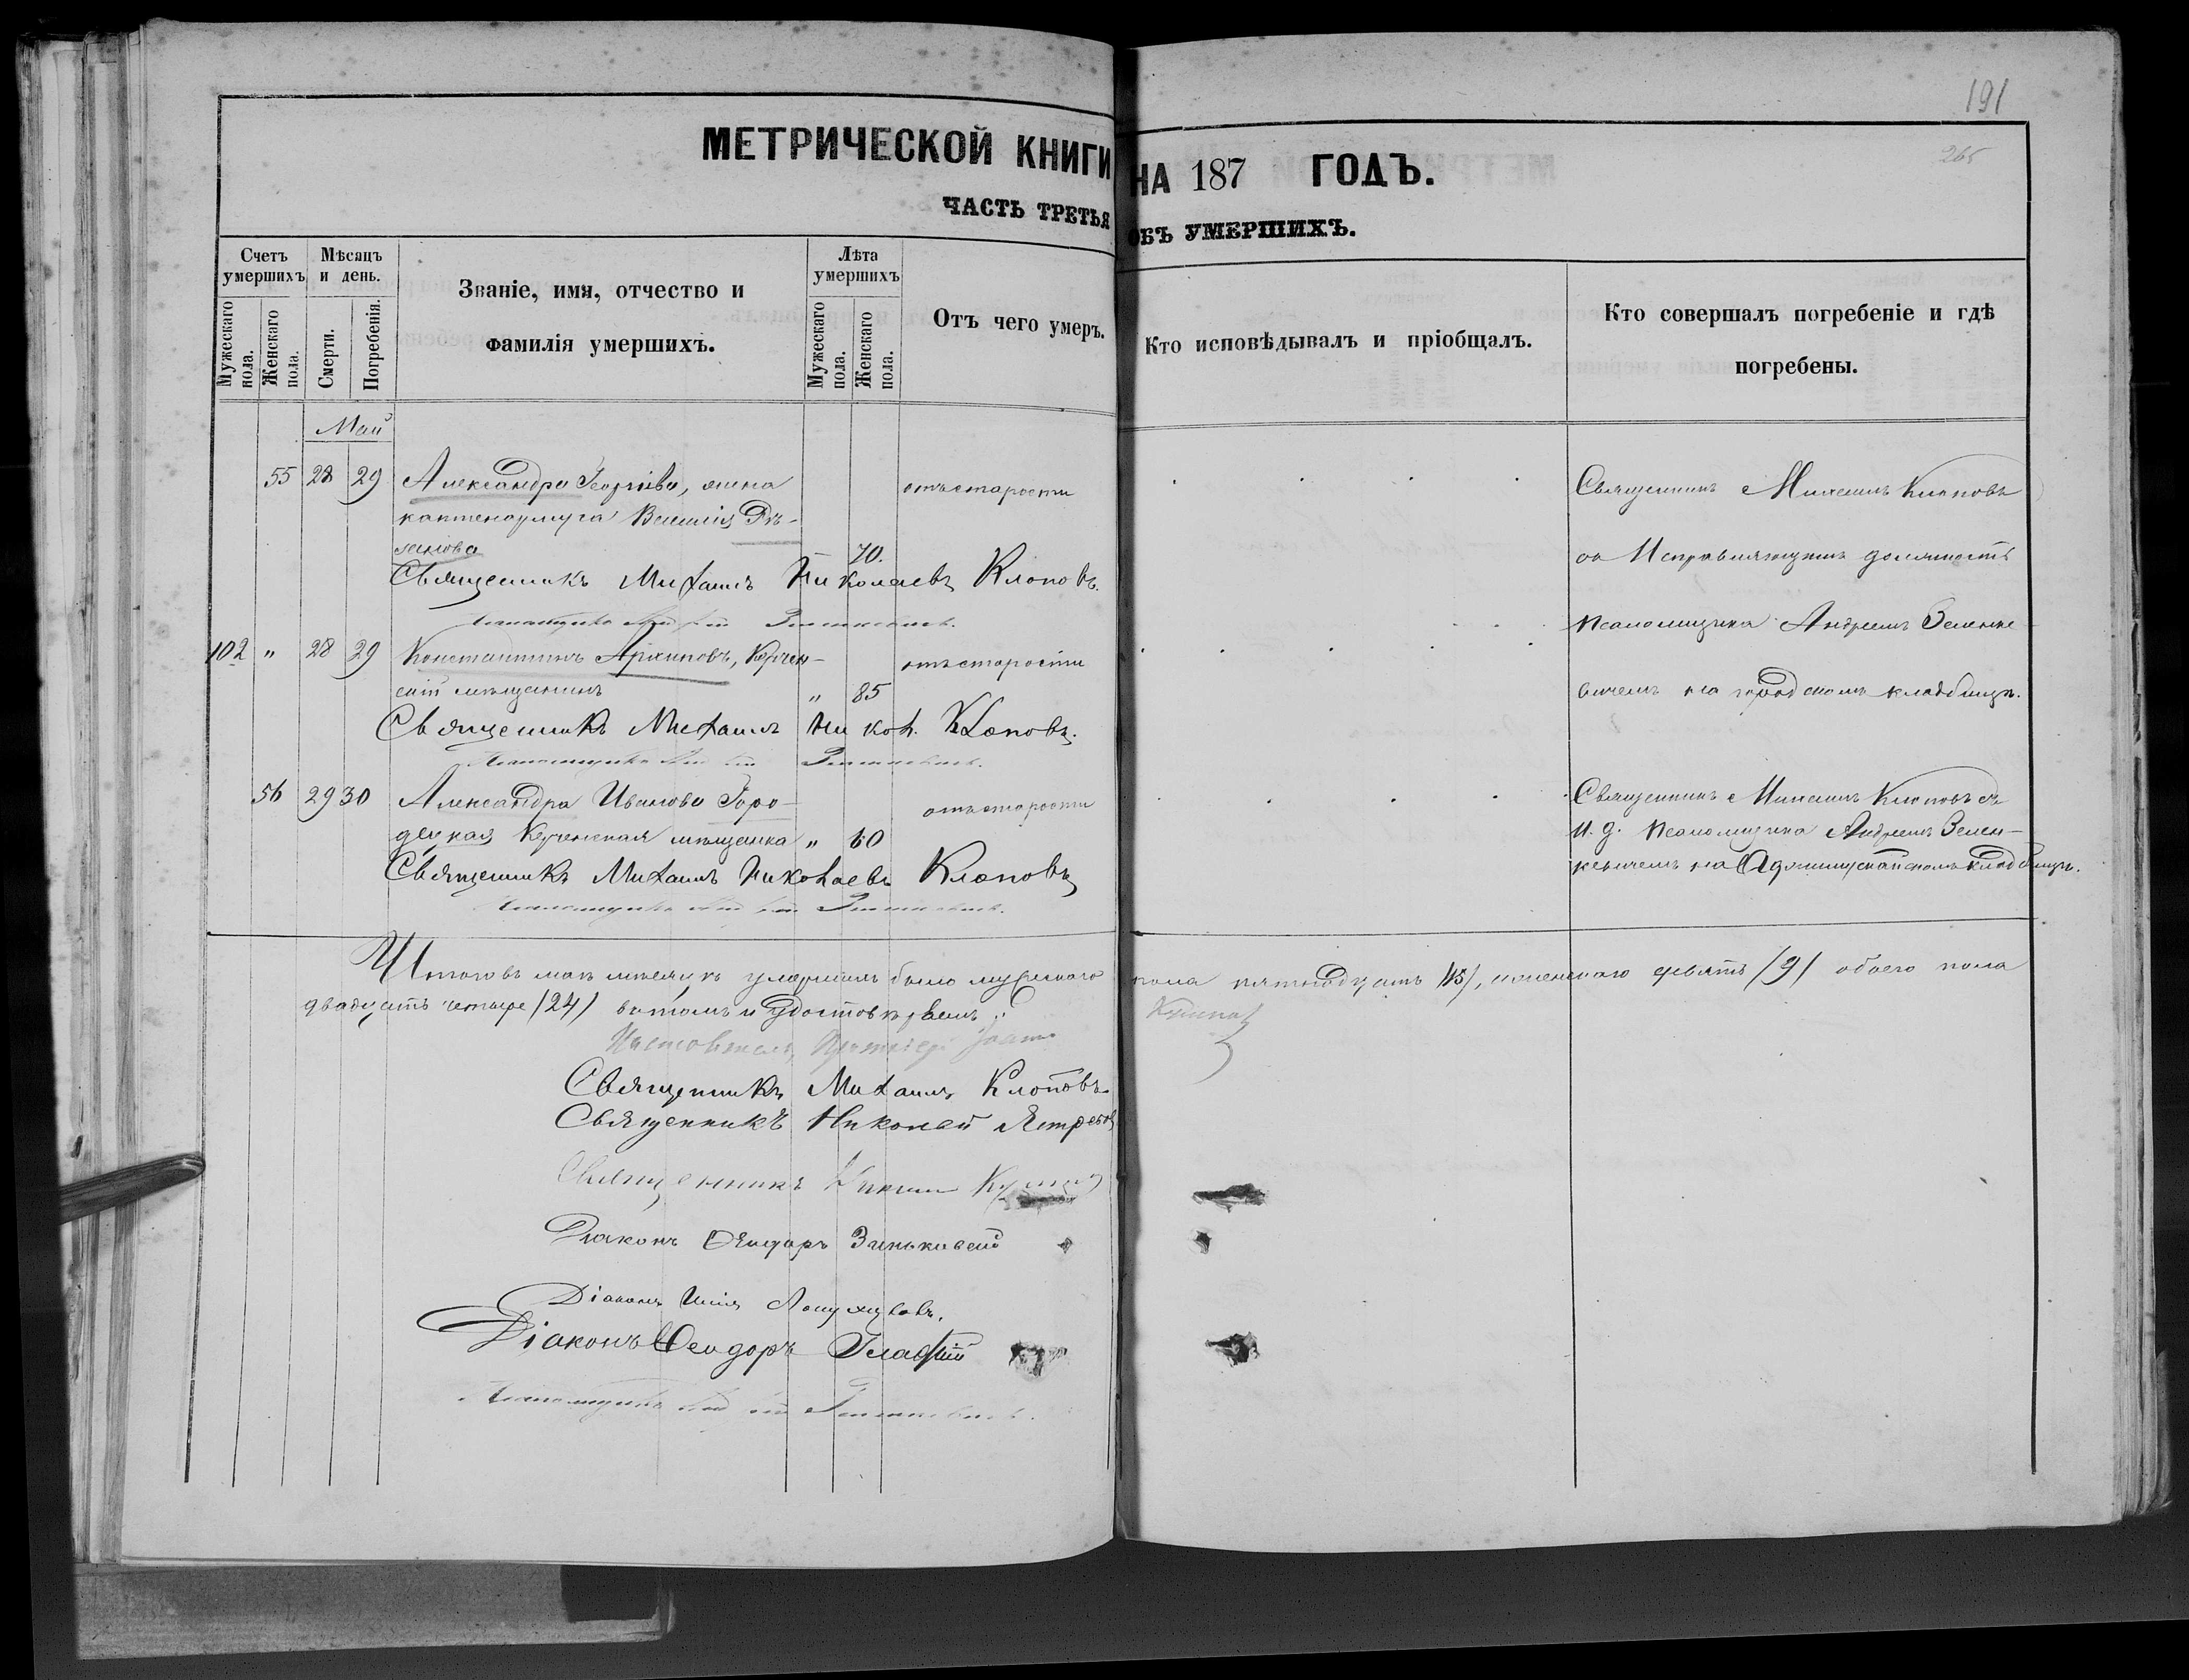 191
265
МЕТРИЧЕСКОЙ КНИГИ НА 187 ГОДЪ.
ЧАСТЬ ТРЕТЬЯ ОБЪ УМЕРШИХЪ.
Счетъ умершихъ
Мѣсяцъ и день.
Званіе, имя, отчество и фамилія умершихъ.
Лѣта умершихъ
Отъ чего умеръ.
Кто исповѣдывалъ и пріобщалъ.
Кто совершалъ погребеніе и гдѣ погребены.
Мужескаго пола.
Женскаго пола.
Смерти.
Погребенія.
Мужескаго пола.
Женскаго пола.
Май
55 28 29 Александра Георгіева, жена отъ старости Священникъ Михаилъ Клоповъ
Василія
70. Исправляющимъ должность
Священникъ Михаилъ Николаевъ Клоповъ.
Псаломщика Андреемъ Зеленке-
102 " 28 29 Константинъ Архиповъ, Керчен- отъ старости
скій мѣщанинъ " 85 вичемъ на городскомъ кладбищѣ.
Священникъ Михаилъ Никол. Клоповъ.
56 29 30 Александра Иванова Горо- отъ старости Священникъ Михаилъ Клоповъ съ
децкая Керченская мѣщанка " 60 и. д. Псаломщика Андреемъ Зелен-
Священникъ Михаилъ Николаевъ Клоповъ
кевичемъ на кладбищѣ.
Итого въ маѣ мѣсяцѣ умершихъ было мужескаго пола пятнадцать /15/, женскаго девять /9/ обоего пола
двадцать четыре /24/ въ томъ и удостовѣряемъ:
Священникъ Михаилъ Клоповъ.
Священникъ Николай Ястребовъ
Священникъ
Діаконъ Ѳеодоръ Зиньковскій
Діаконъ Илія
Діаконъ Ѳеодоръ Гладкій